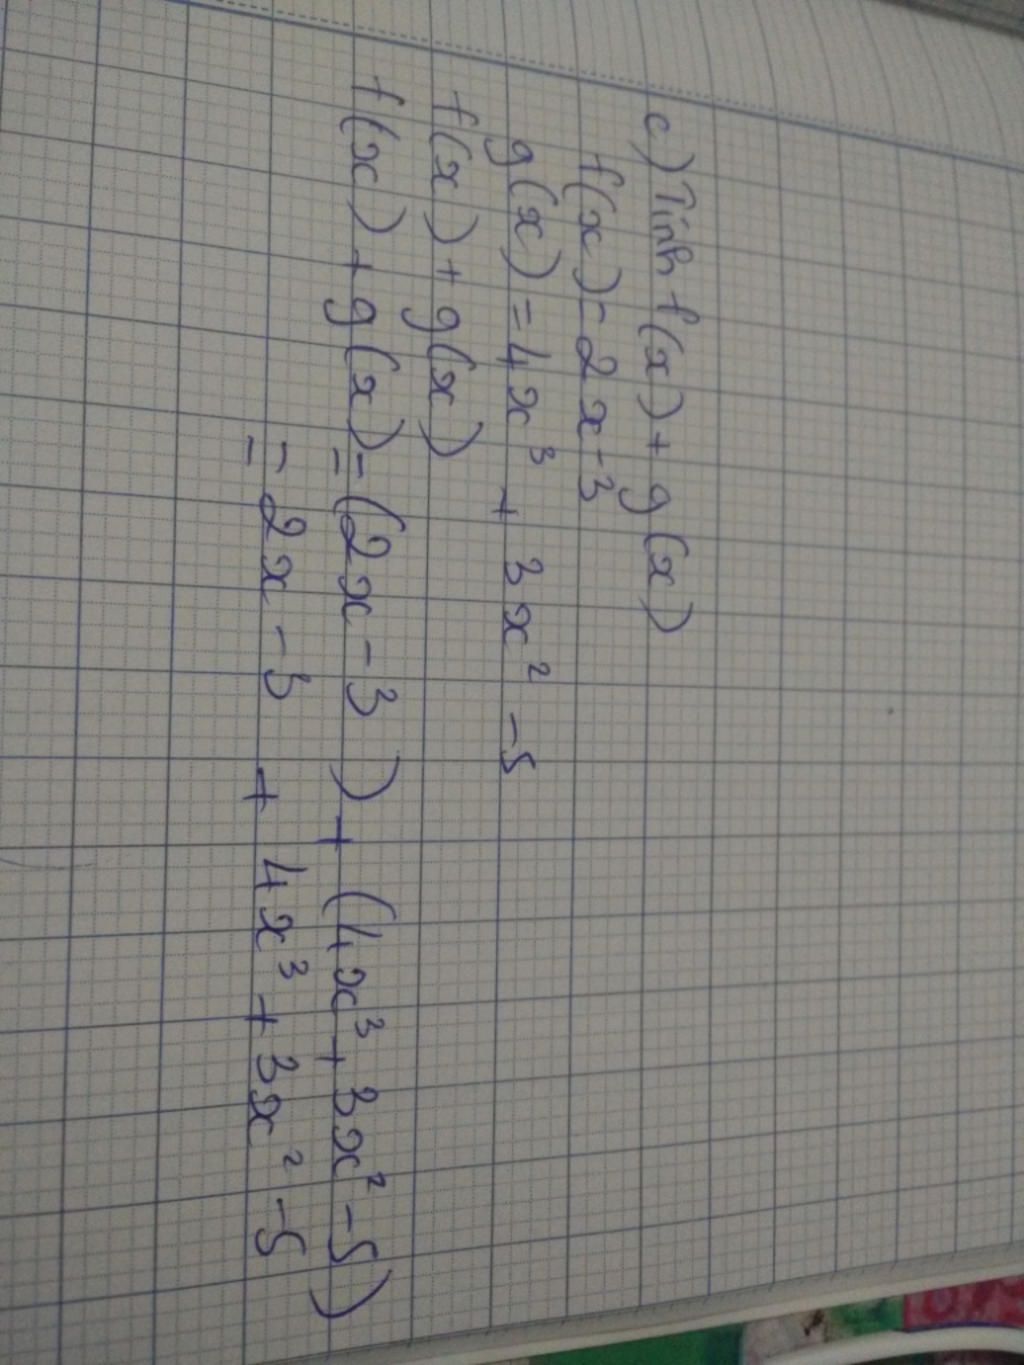 c) Tính f(x) + g(x)
f(x) = 2x - 3
g(x) = 4x³ + 3x² - 5
f(x) + g(x)
f(x) + g(x) = (2x - 3) + (4x³ + 3x² - 5)
= 2x - 3 + 4x³ + 3x² - 5
=